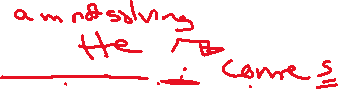 am not solving
He comes